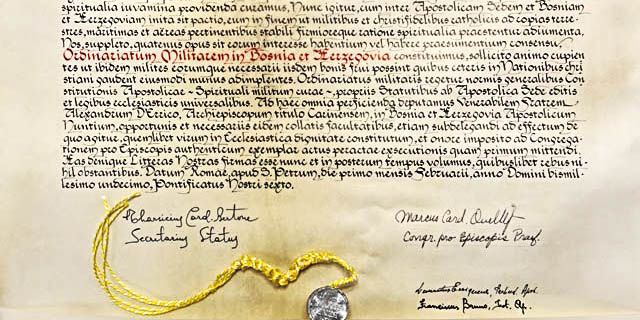 spiritualia iuvamina providenda curamus, Nunc igitur, cum inter Apostolicam Sedem et Bosniam
et Herzegoviam inita sit pactio, cum in finem ut militibus et christifidelibus catholicis ad copias terre-
stres, maritimas et aëreas pertinentibus stabili firmioreque ratione spiritualia praestentur adiumenta,
Nos, suppleto, quatenus opus sit eorum interesse habentium vel habere praesumentium consensu,
Ordinariatum Militarem in Bosnia et Herzegovia constituimus, sollicito animo cupien-
tes ut ibidem milites eorumque necessarii iisdem bonis frui possint quibus ceteris in Nationibus chri-
stiani gaudent eiusmodi munus adimplentes. Ordinariatus militaris regetur normis generalibus Con
stitutionis Apostolicae - Spirituali militum curae -, propriis Statutibus ab Apostolica Sede editis
et legibus ecclesiasticis universalibus. Ad haec omnia perficienda deputamus Venerabilem Fratrem
Alexandrum D'Errico, Archiepiscopum titulo Carinensem, in Bosnia et Herzegovia Apostolicum
Nuntium, opportunis et necessariis eidem collatis facultatibus, etiam subdelegandi ad effectum de
quo agitur, quemlibet virum in Ecclesiastica dignitate constitutum, et onore imposito ad Congrega-
tionem pro Episcopis authenticum exemplar actus peractae exsecutionis quam primum mittendi.
Has denique Litteras Nostras firmas esse nunc et in posterum tempus volumus, quibuslibet rebus ni-
hil obstantibus. Datum Romae, apud S. Petrum, die primo mensis Februarii, anno Domini bismil-
lesimo undecimo, Pontificatus Nostri sexto.
Card. Bertone
Secretarius Status
Marcus Card. Ouellet
Congr. pro Episcopis Praef.
Franciscus Bruno,